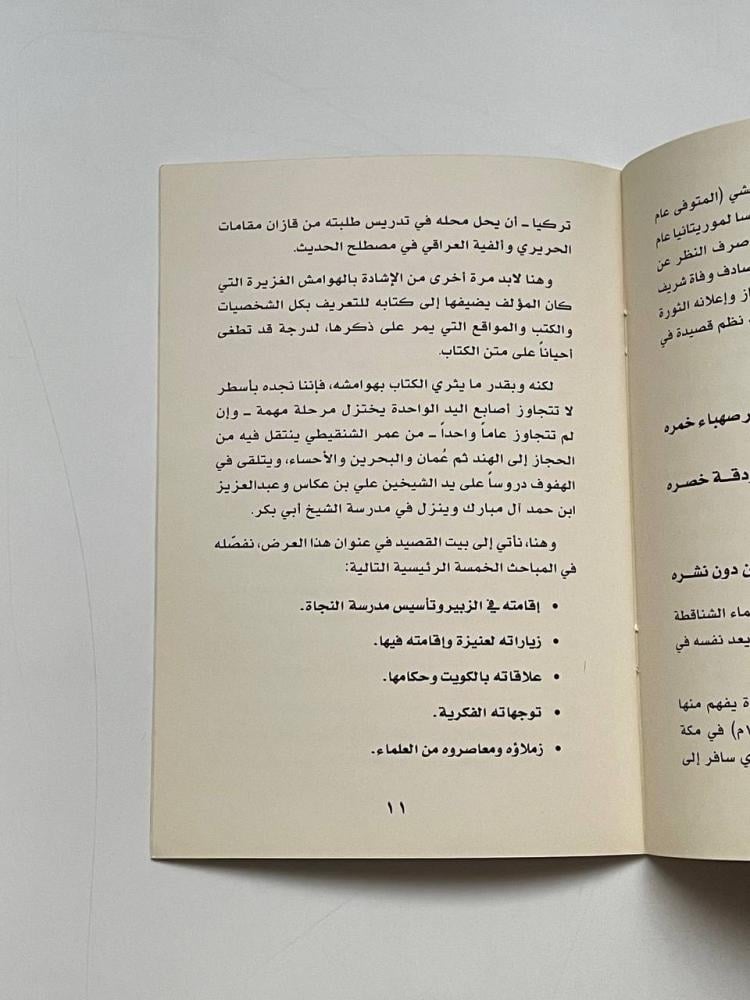 يشي (المتوفى عام
سا لموريتانيا عام
صرف النظر عن
سادف وفاة شريف
از وإعلانه الثورة
نظم قصيدة في
ر صهباء خمره
ودقة خصره
ن دون نشره
ماء الشناقطة
يعد نفسه في
ة يفهم منها
م) في مكة
ي سافر إلى
تركيا ـ أن يحل محله في تدريس طلبته من قازان مقامات
الحريري وألفية العراقي في مصطلح الحديث.
وهنا لابد مرة أخرى من الإشادة بالهوامش الغزيرة التي
كان المؤلف يضيفها إلى كتابه للتعريف بكل الشخصيات
والكتب والمواقع التي يمر على ذكرها، لدرجة قد تطغى
أحياناً على متن الكتاب.
لكنه وبقدر ما يثري الكتاب بهوامشه، فإننا نجده بأسطر
لا تتجاوز أصابع اليد الواحدة يختزل مرحلة مهمة ـ وإن
لم تتجاوز عاماً واحداً ـ من عمر الشنقيطي ينتقل فيه من
الحجاز إلى الهند ثم عُمان والبحرين والأحساء، ويتلقى في
الهفوف دروساً على يد الشيخين علي بن عكاس وعبدالعزيز
ابن حمد آل مبارك وينزل في مدرسة الشيخ أبي بكر.
وهنا، نأتي إلى بيت القصيد في عنوان هذا العرض، نفصّله
في المباحث الخمسة الرئيسية التالية:
• إقامته في الزبير وتأسيس مدرسة النجاة.
• زياراته لعنيزة وإقامته فيها.
• علاقاته بالكويت وحكامها.
• توجهاته الفكرية.
• زملاؤه ومعاصروه من العلماء.
١١